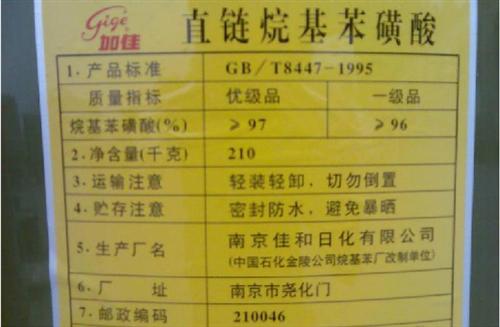 Gige
加佳
直链烷基苯磺酸
1·产品标准 GB／T8447-1995
质量指标 优级品 一级品
烷基苯磺酸(%) ≥97 ≥96
2·净含量(千克) 210
3·运输注意 轻装轻卸，切勿倒置
4·贮存注意 密封防水，避免暴晒
5·生产厂名 南京佳和日化有限公司
(中国石化金陵公司烷基苯厂改制单位)
6·厂 址 南京市尧化门
7·邮政编码 210046